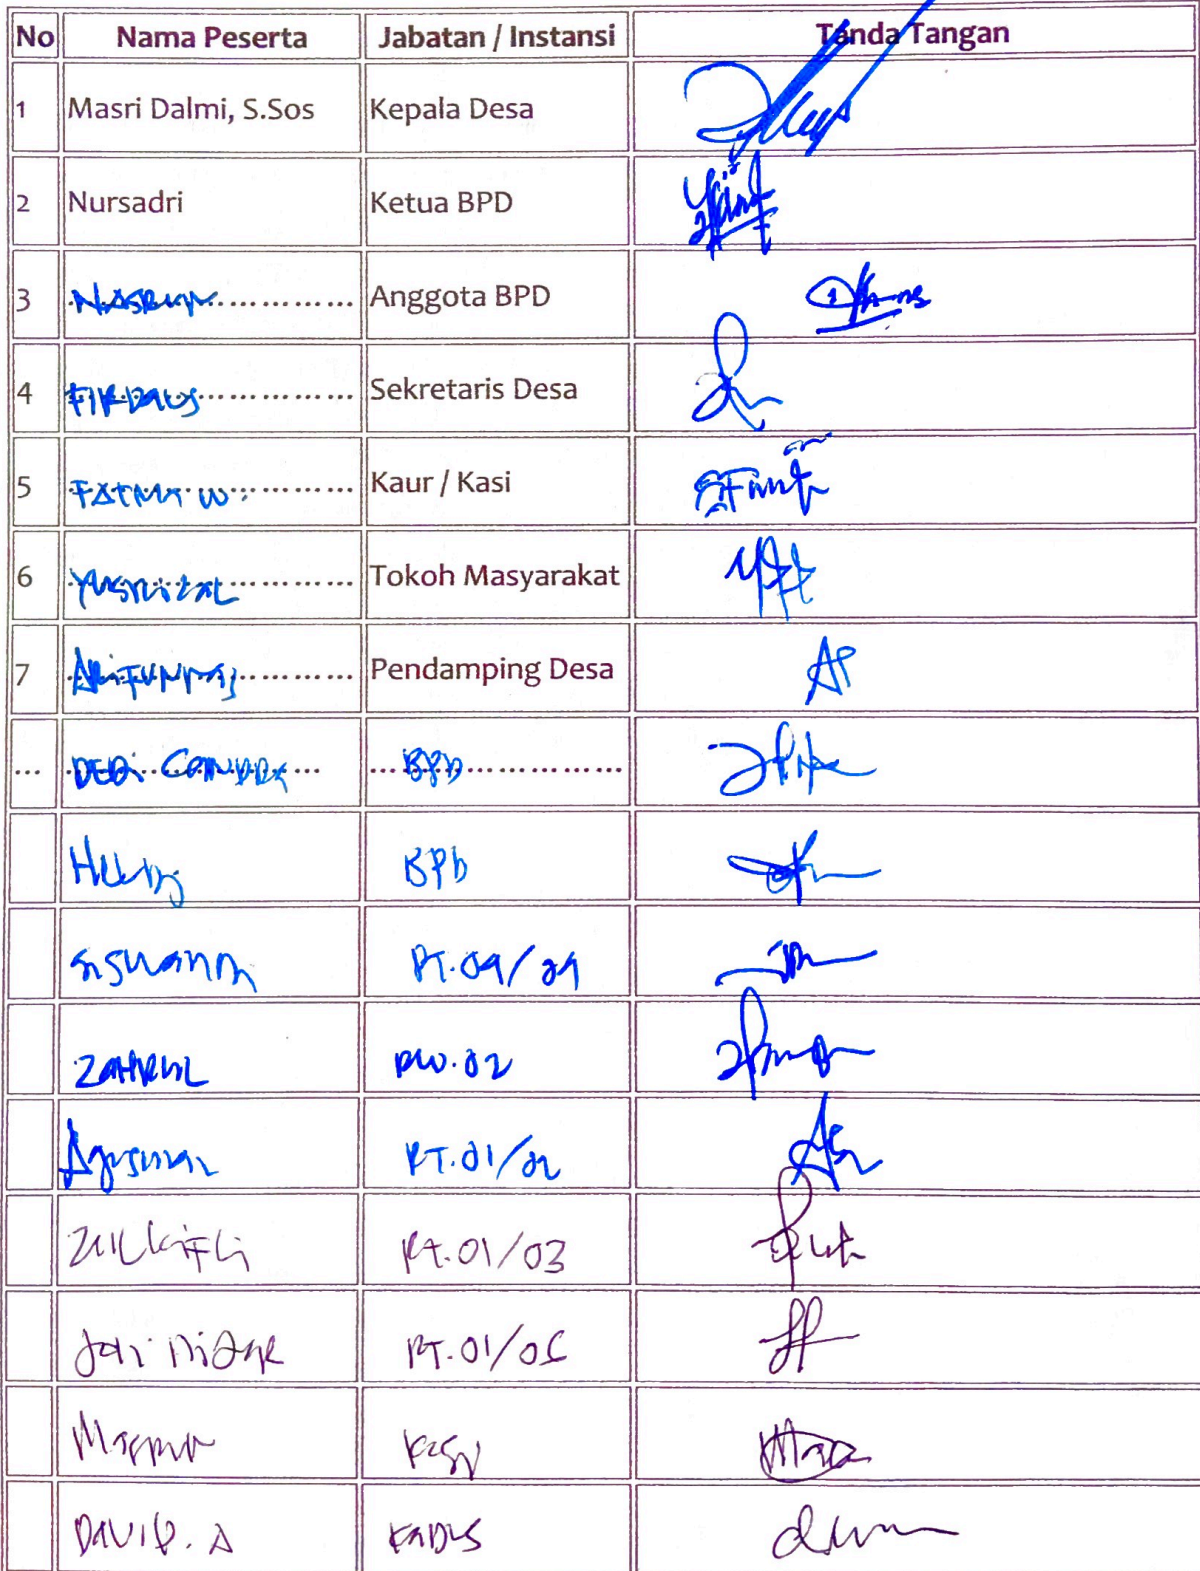 No Nama Peserta Jabatan / Instansi Tanda Tangan
1 Masri Dalmi, S.Sos Kepala Desa
2 Nursadri Ketua BPD
3 Nasrun.............. Anggota BPD
4 Firdaus.............. Sekretaris Desa
5 Fatma W............. Kaur / Kasi
6 Yusrizal.............. Tokoh Masyarakat
7 .............. Pendamping Desa
... Dedi Candra... ...BPD..............
BPD
Siswanto RT.04/04
Zahrul RW.02
Agusmar RT.01/02
Zulkifli RT.01/03
RT.01/05
Kasi
David. A Kadus